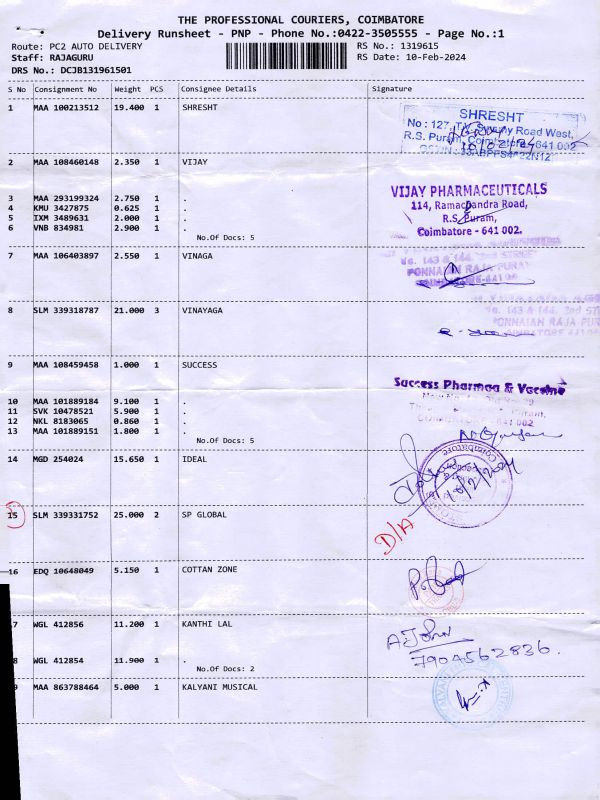 THE PROFESSIONAL COURIERS, COIMBATORE
Delivery Runsheet - PNP - Phone No.:0422-3505555 - Page No.:1
Route: PC2 AUTO DELIVERY
Staff: RAJAGURU
DRS No.: DCJB131961501
RS No.: 1319615
RS Date: 10-Feb-2024
S No Consignment No Weight PCS Consignee Details Signature
1 MAA 100213512 19.400 1 SHRESHT
SHRESHT
No : 127, Swamy Road West,
R.S. Puram, Coimbatore - 641 002
2 MAA 108460148 2.350 1 VIJAY
3 MAA 293199324 2.750 1 .
4 KMU 3427875 0.625 1 .
5 IXM 3489631 2.000 1 .
6 VNB 834981 2.900 1 .
No.Of Docs: 5
VIJAY PHARMACEUTICALS
114, Ramachandra Road,
R.S. Puram,
Coimbatore - 641 002.
7 MAA 106403897 2.550 1 VINAGA
No. 143 & 144.
PONNAIAN RAJA PURAM
8 SLM 339318787 21.000 3 VINAYAGA
143 & 144. 2nd ST
PONNAIAN RAJA PUR
9 MAA 108459458 1.000 1 SUCCESS
10 MAA 101889184 9.100 1 .
11 SVK 10478521 5.900 1 .
12 NKL 8183065 0.860 1 .
13 MAA 101889151 1.800 1 .
No.Of Docs: 5
Success Pharmaa & Vaccine
14 MGD 254024 15.650 1 IDEAL
Coimbatore
10/2/2024
15 SLM 339331752 25.000 2 SP GLOBAL
D/A
16 EDQ 10648049 5.150 1 COTTAN ZONE
7 WGL 412856 11.200 1 KANTHI LAL
8 WGL 412854 11.900 1 .
No.Of Docs: 2
A. John
7904562836.
9 MAA 863788464 5.000 1 KALYANI MUSICAL